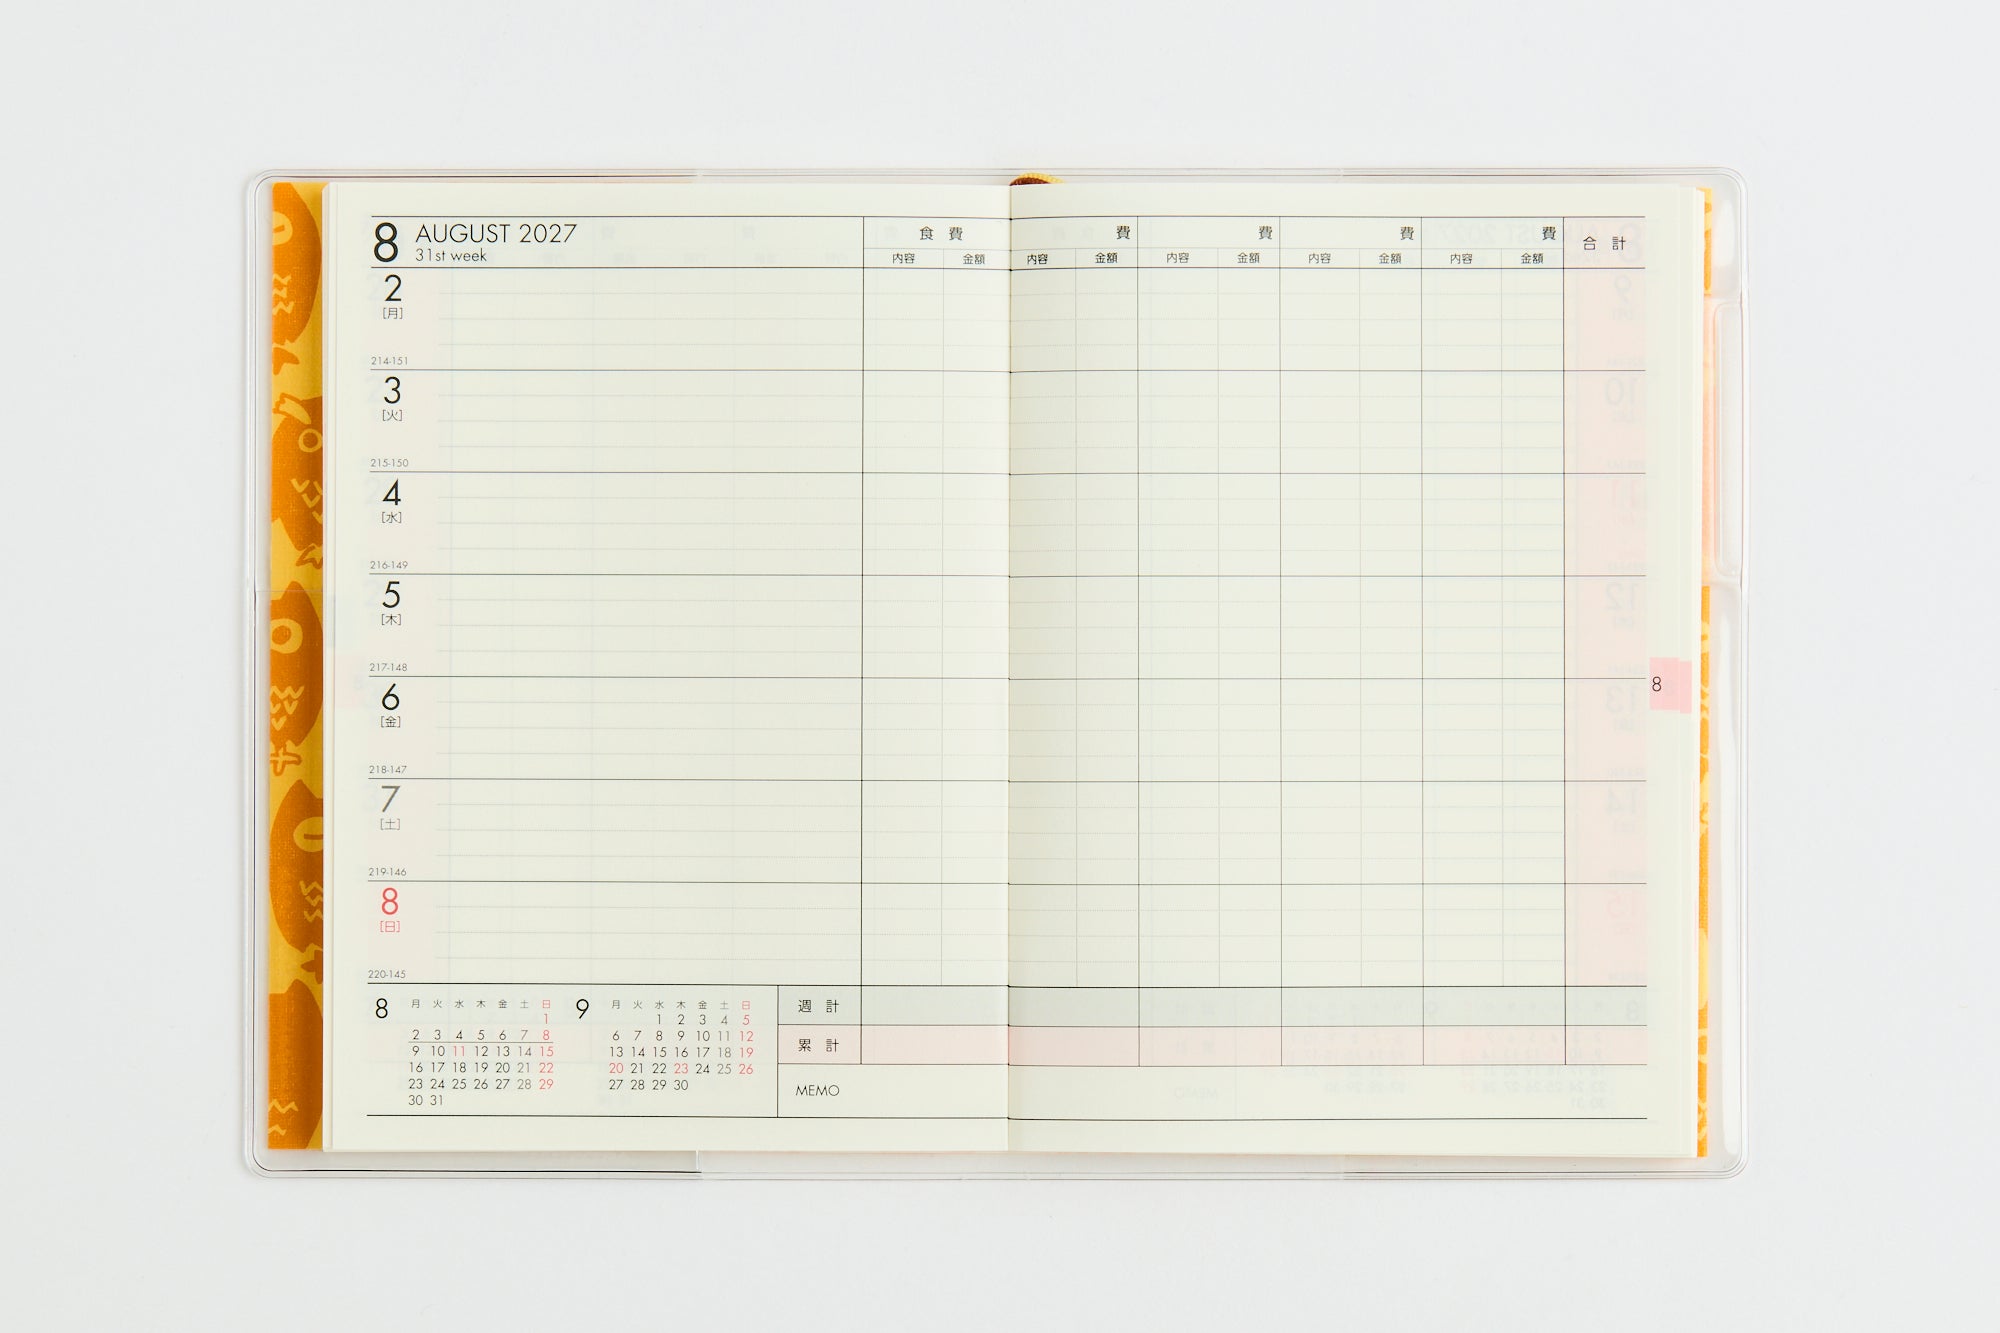 8 AUGUST 2027
31st week
食 費 費 費 費 費 合 計
内容 金額 内容 金額 内容 金額 内容 金額 内容 金額
2
[月]
214-151
3
[火]
215-150
4
[水]
216-149
5
[木]
217-148
6
[金]
218-147
8
7
[土]
219-146
8
[日]
220-145
8 月 火 水 木 金 土 日
1
2 3 4 5 6 7 8
9 10 11 12 13 14 15
16 17 18 19 20 21 22
23 24 25 26 27 28 29
30 31
9 月 火 水 木 金 土 日
1 2 3 4 5
6 7 8 9 10 11 12
13 14 15 16 17 18 19
20 21 22 23 24 25 26
27 28 29 30
週 計
累 計
MEMO